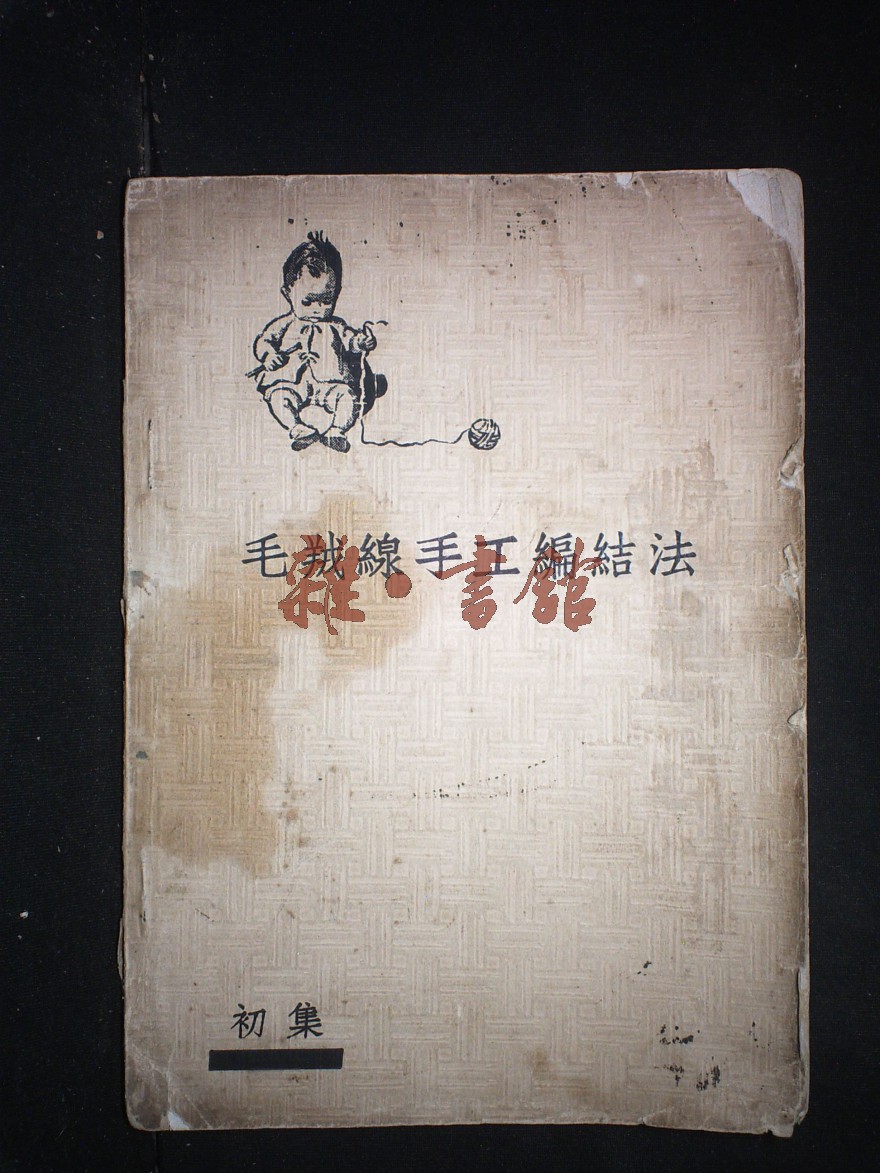 毛羢線手工編結法
雜·書館
初集